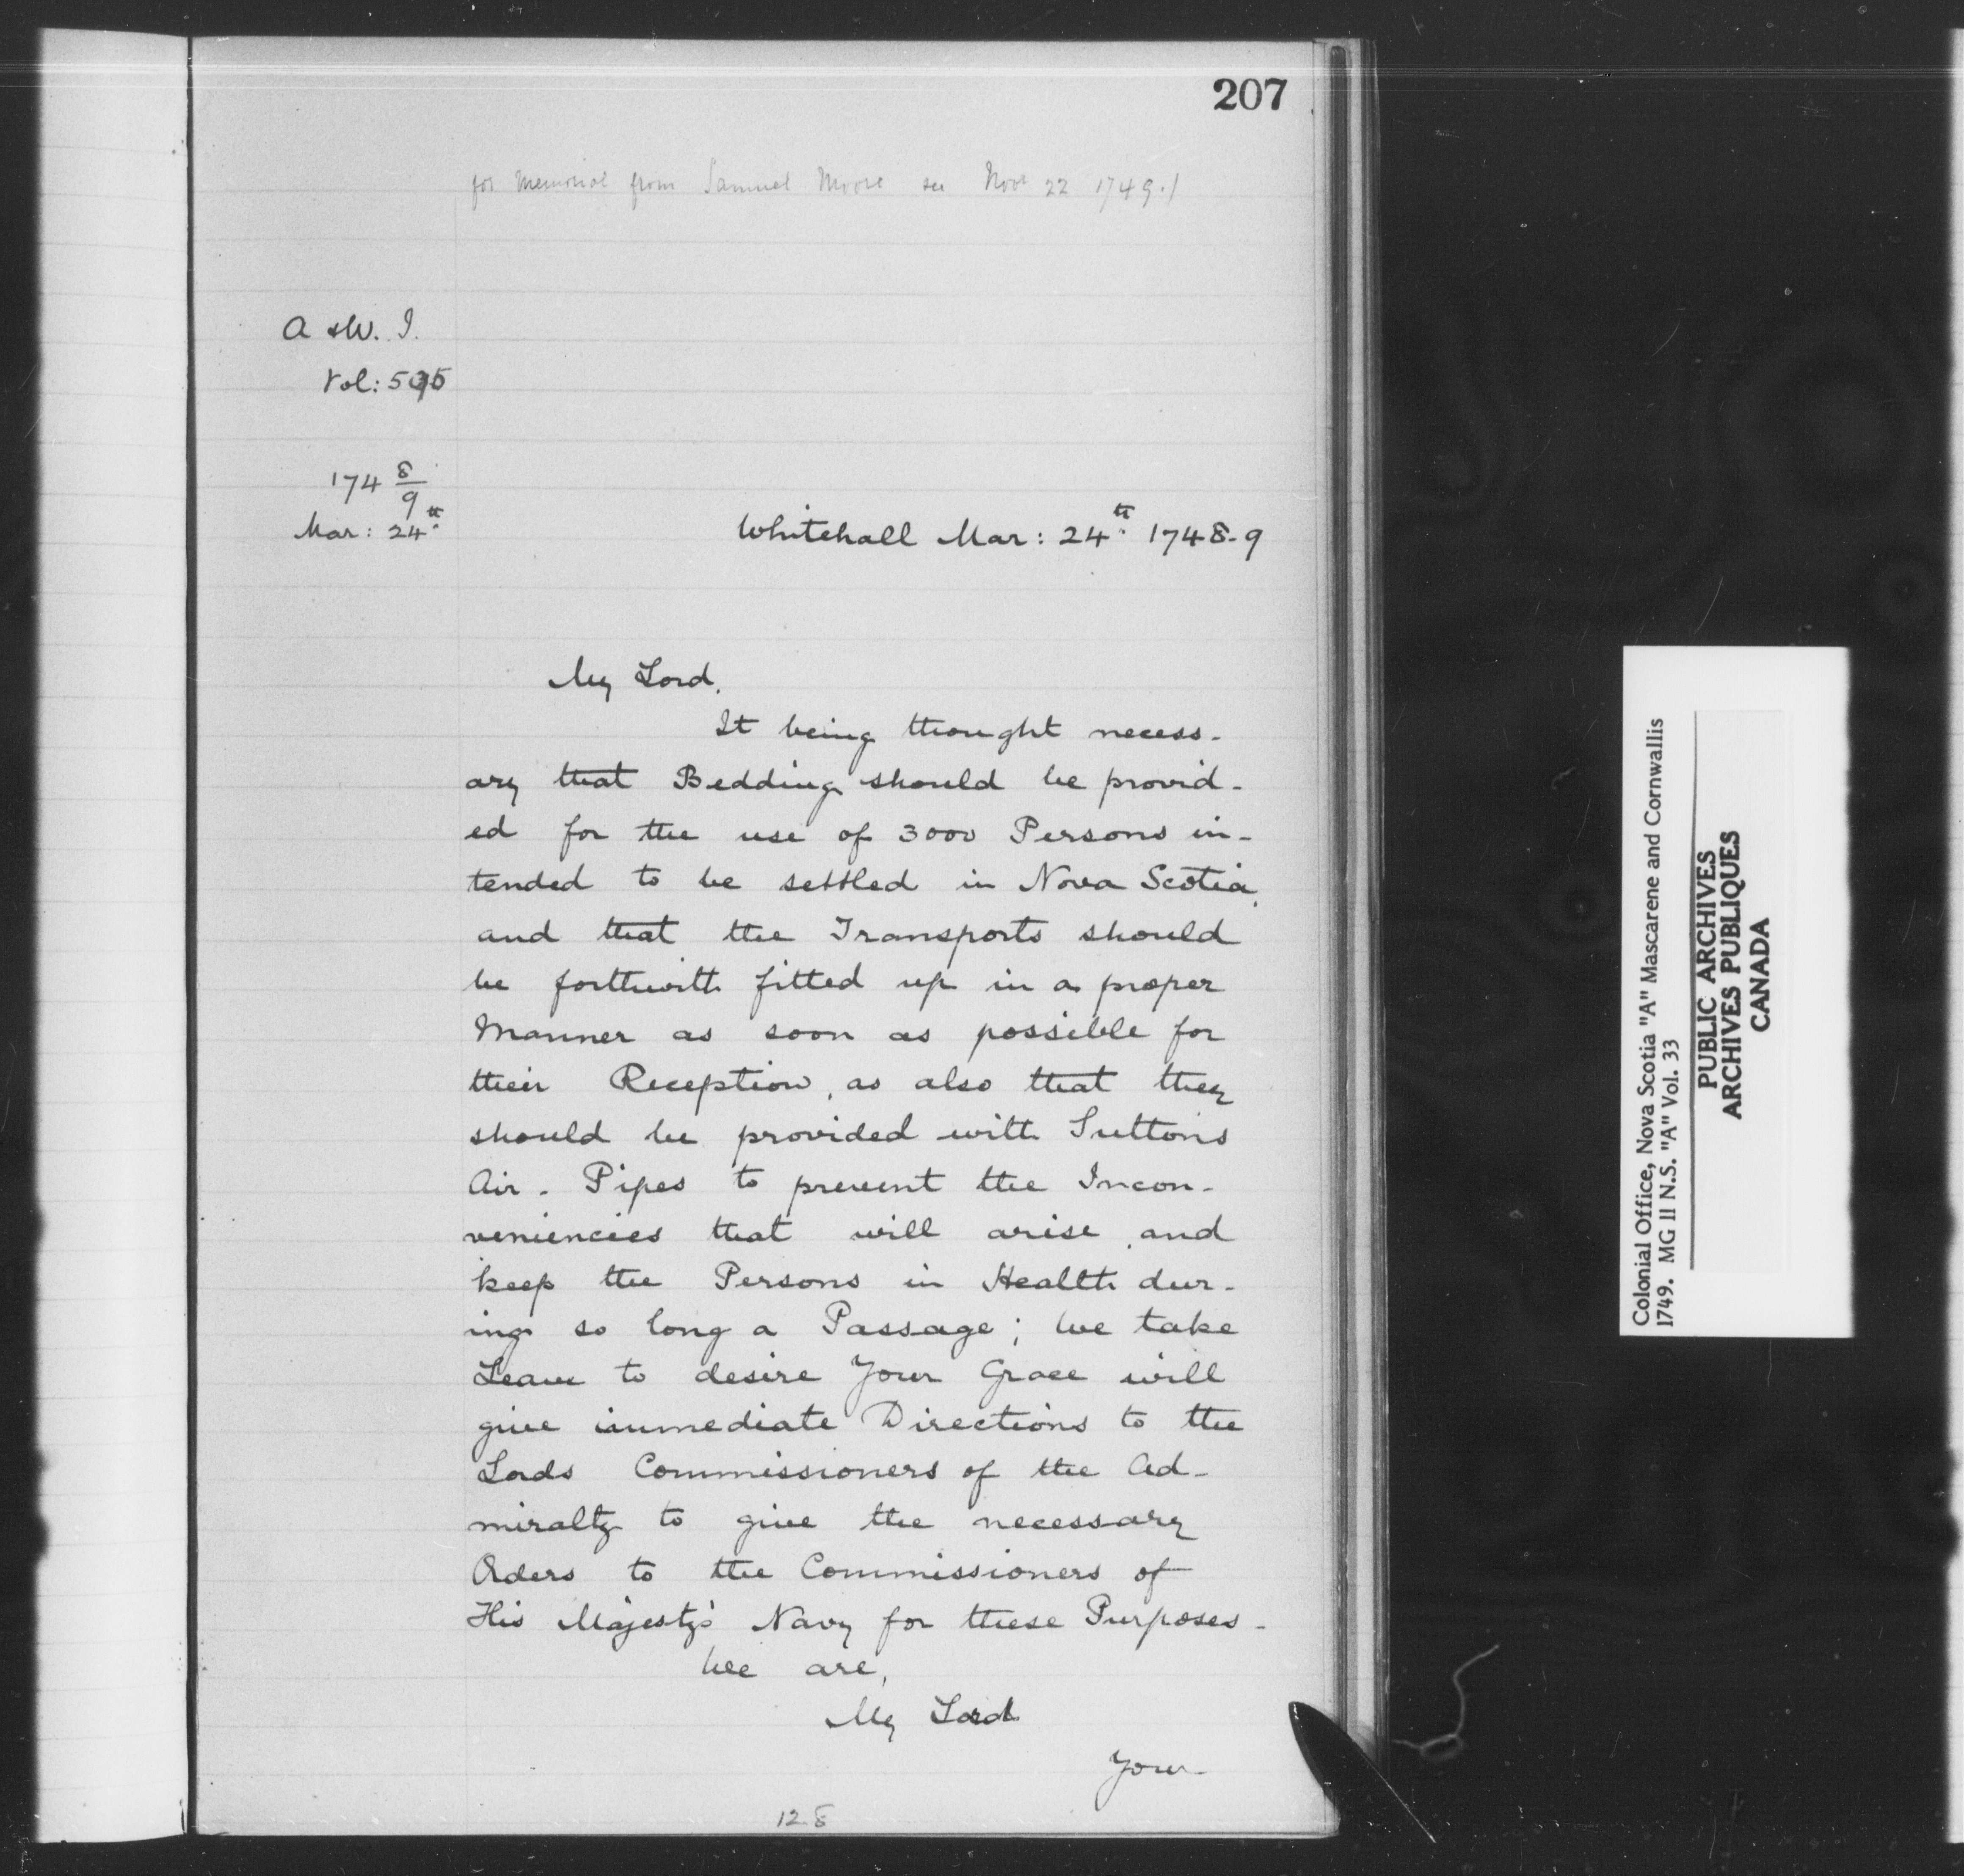 207
for Memorial from Samuel Moore see Novr 22 1749.)
A & W. I.
Vol: 595
174 8/9
Mar: 24th
Whitehall Mar: 24th 1748-9
My Lord,
It being thought necess-
ary that Bedding should be provid-
ed for the use of 3000 Persons in-
tended to be settled in Nova Scotia,
and that the Transports should
be forthwith fitted up in a proper
Manner as soon as possible for
their Reception, as also that they
should be provided with Suttons
Air-Pipes to prevent the Incon-
veniencies that will arise, and
keep the Persons in Health dur-
ing so long a Passage; We take
Leave to desire Your Grace will
give immediate Directions to the
Lords Commissioners of the Ad-
miralty to give the necessary
Orders to the Commissioners of
His Majesty's Navy for these Purposes.
We are,
My Lord
Your
128
Colonial Office, Nova Scotia "A" Mascarene and Cornwallis
1749. MG 11 N.S. "A" Vol. 33
PUBLIC ARCHIVES
ARCHIVES PUBLIQUES
CANADA